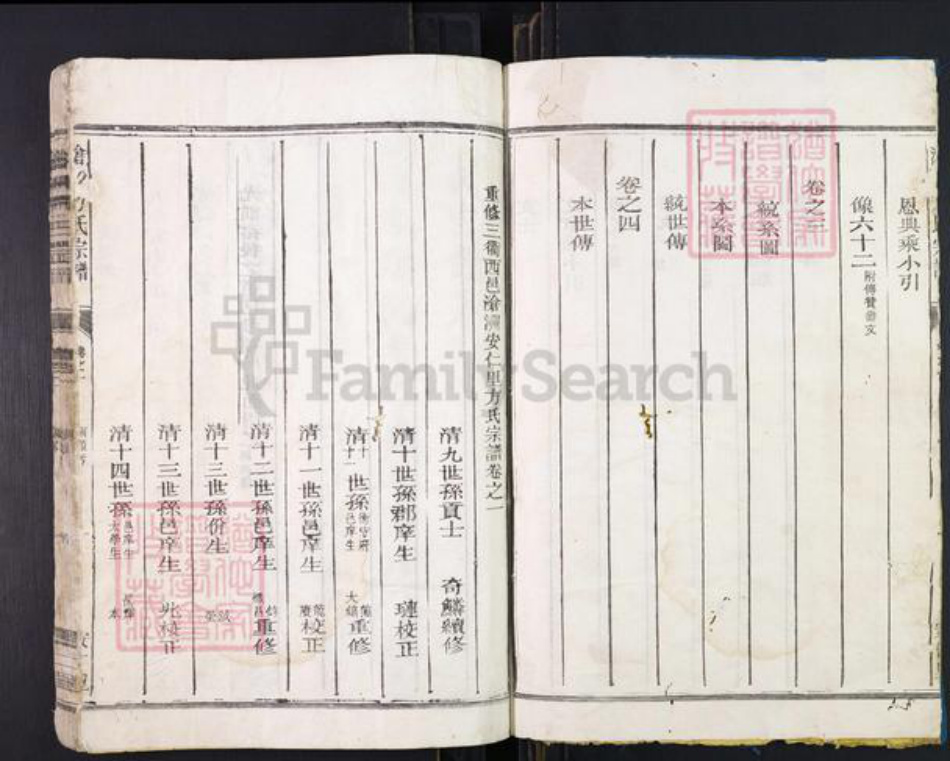 恩典乘小引
像六十二 附傳贊啓文
卷之三
統系圖
本系圖
統世傳
卷之四
本世傳
重修三衢西邑滄洲安仁里方氏宗譜卷之一
清九世孫貢士 奇麟續修
清十世孫郡庠生 璉校正
清十一世孫 邑庠生 重修
清十一世孫邑庠生 校正
清十二世孫邑庠生 重修
清十三世孫佾生
清十三世孫邑庠生 校正
清十四世孫 邑庠生 太學生 本
方氏宗譜
卷之一
FamilySearch